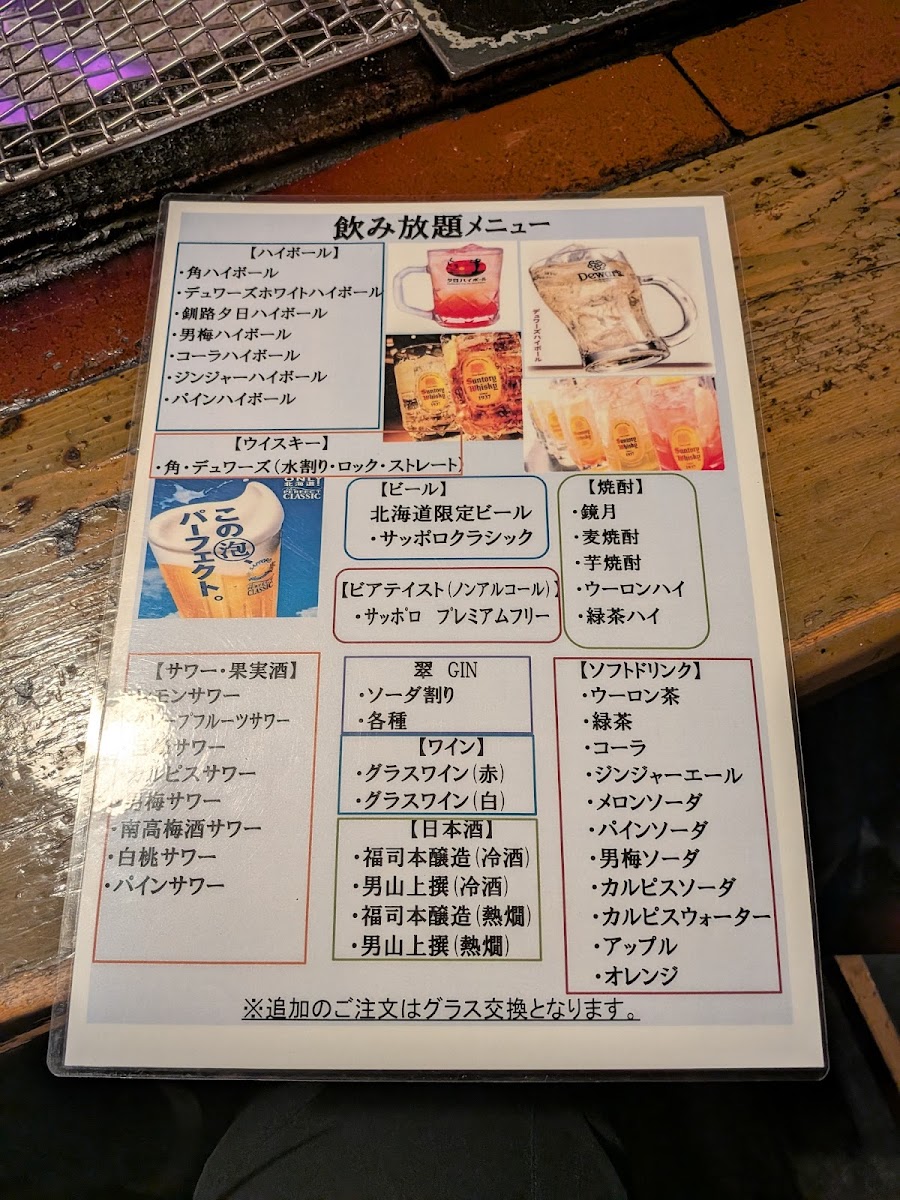 飲み放題メニュー
【ハイボール】
・角ハイボール
・デュワーズホワイトハイボール
・釧路夕日ハイボール
・男梅ハイボール
・コーラハイボール
・ジンジャーハイボール
・パインハイボール
夕日ハイボール
Dewar's
デュワーズハイボール
Suntory
Whisky
1937
Suntory
Whisky
1937
Suntory
Whisky
Suntory
Whisky
【ウイスキー】
・角・デュワーズ(水割り・ロック・ストレート)
ONLY
北海道!
PERFECT
CLASSIC
この泡、
パーフェクト。
CLASSIC
【ビール】
北海道限定ビール
・サッポロクラシック
【ビアテイスト(ノンアルコール)】
・サッポロ プレミアムフリー
【焼酎】
・鏡月
・麦焼酎
・芋焼酎
・ウーロンハイ
・緑茶ハイ
【サワー・果実酒】
レモンサワー
グレープフルーツサワー
サワー
カルピスサワー
男梅サワー
・南高梅酒サワー
・白桃サワー
・パインサワー
翠 GIN
・ソーダ割り
・各種
【ワイン】
・グラスワイン(赤)
・グラスワイン(白)
【日本酒】
・福司本醸造(冷酒)
・男山上撰(冷酒)
・福司本醸造(熱燗)
・男山上撰(熱燗)
【ソフトドリンク】
・ウーロン茶
・緑茶
・コーラ
・ジンジャーエール
・メロンソーダ
・パインソーダ
・男梅ソーダ
・カルピスソーダ
・カルピスウォーター
・アップル
・オレンジ
※追加のご注文はグラス交換となります。